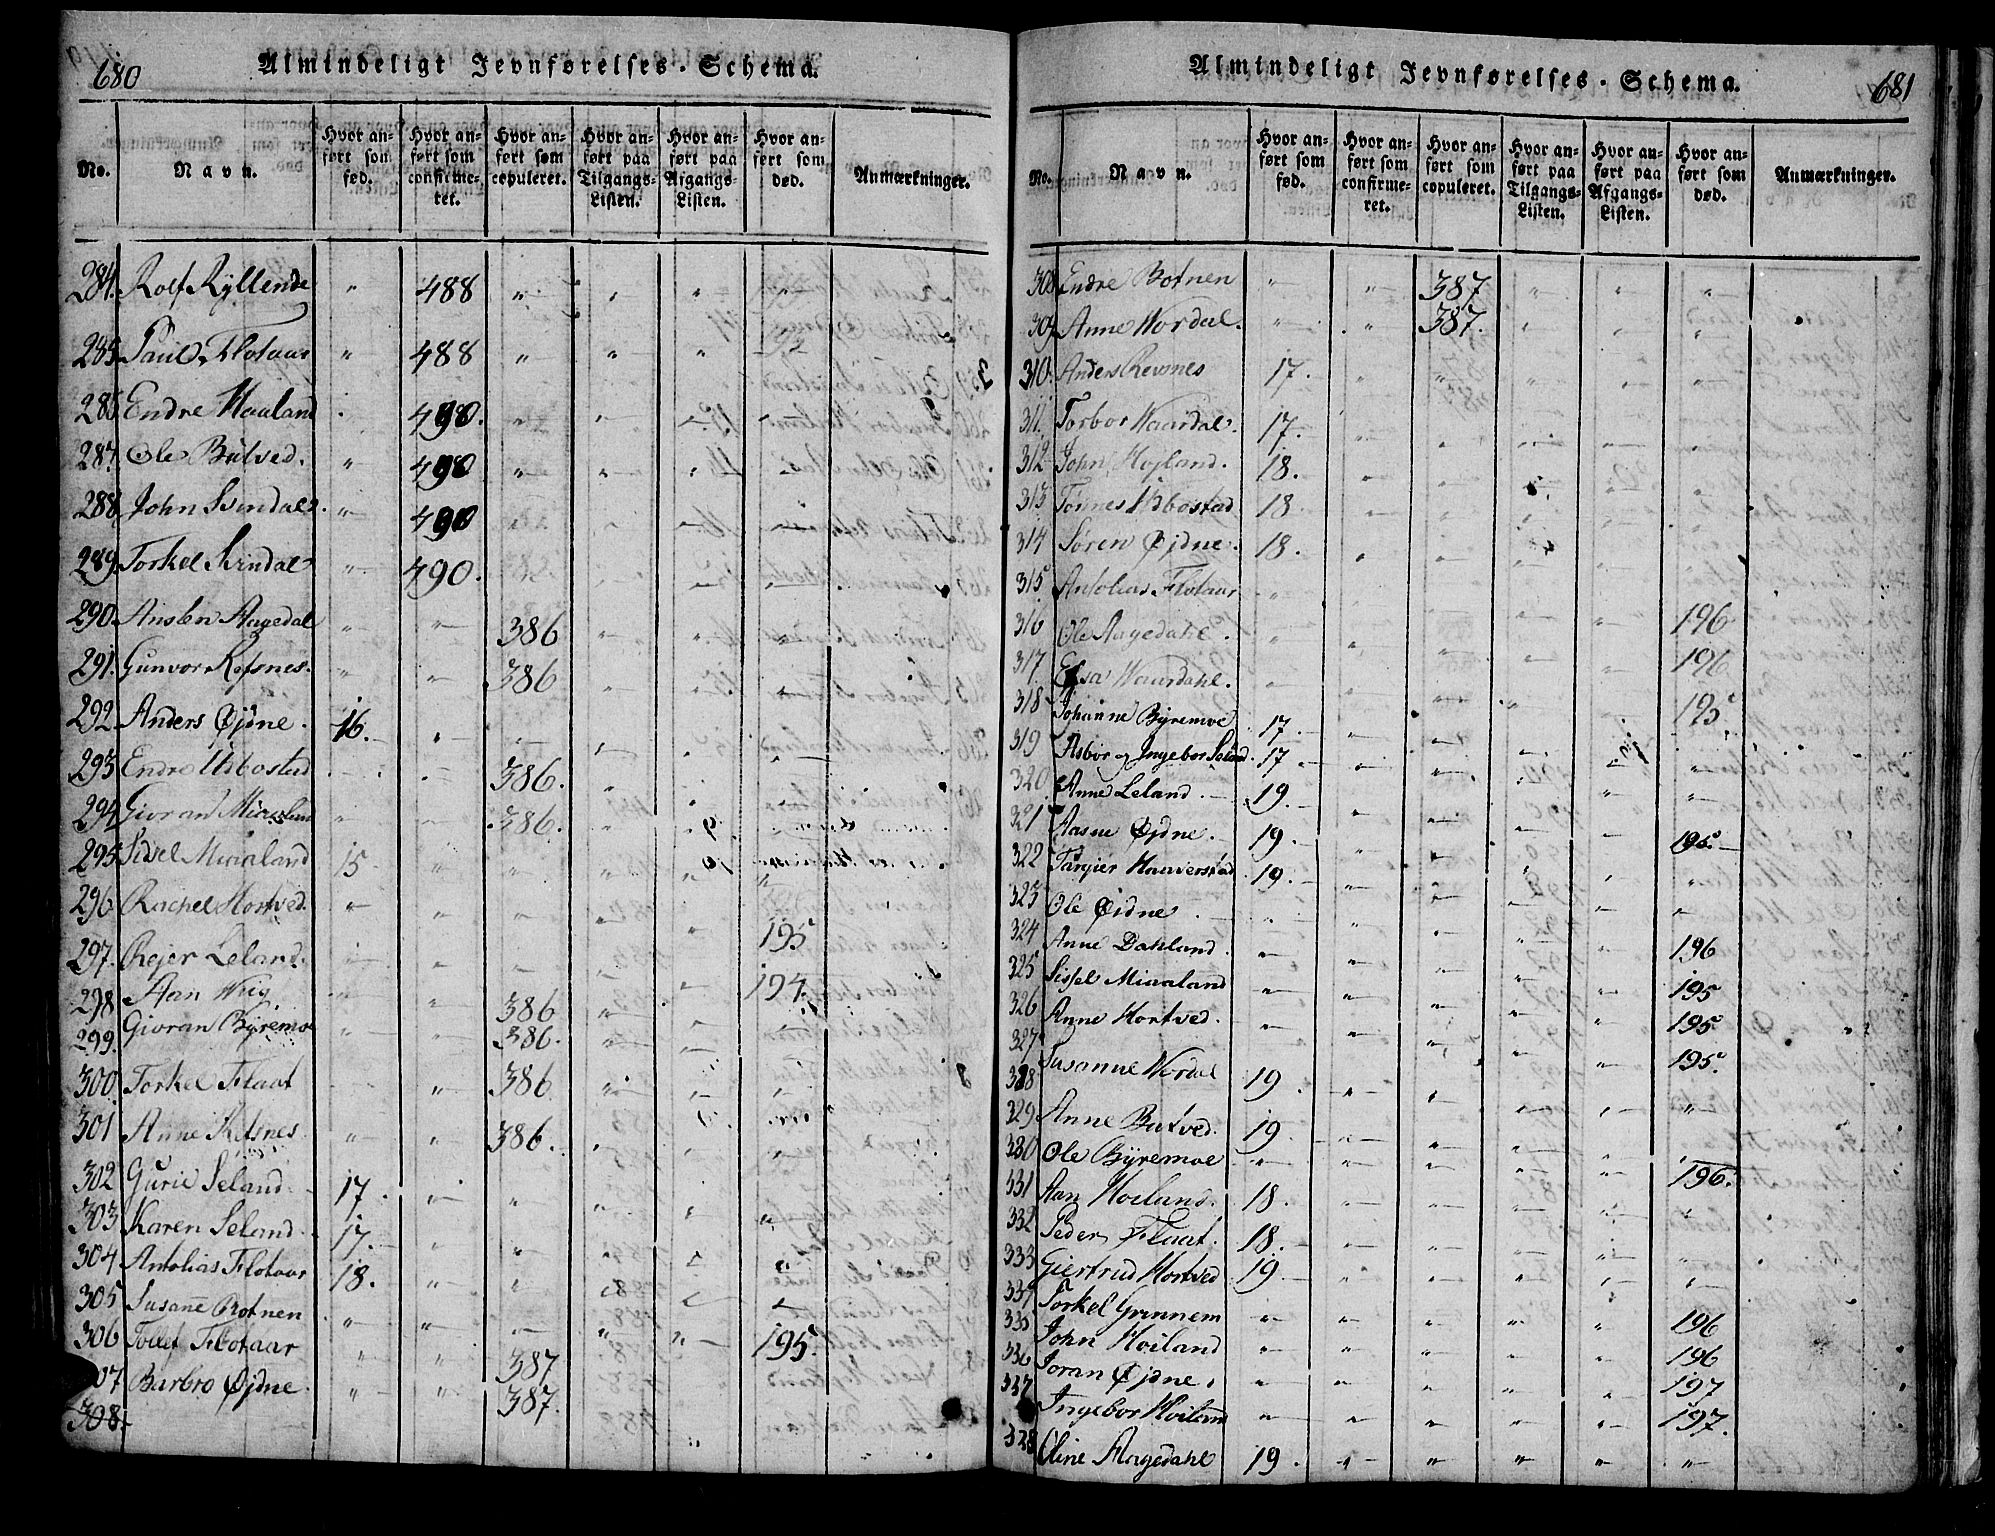 680
Almindeligt Jevnførelses-Schema.
No. Navn. Hvor anført som fød. Hvor anført som confirmeret. Hvor anført som copuleret. Hvor anført paa Tilgangs-Listen. Hvor anført paa Afgangs-Listen. Hvor anført som død. Anmærkninger.
284. Rolf Ryllende " 488 " " " "
285. Paul Flotaar " 488 " " "
Endre Haaland 490. " " " "
287. Ole Butved. " 490 " " " "
288. John Svindal. " 490 " " " "
289. Torkel Svindal " 490. " " " "
290. Ansten Aagedal " " 386 " " "
291. Gunvor Refsnes. " " 386 " " "
292. Anders Øjdne. 16. " " " " "
293. Endre Udbostad " " 386. " " "
294. Gioran Miaaland " " 386. " "
295. Sidsel Miaaland 15 " " " " "
296. Rachel Hortved. " " " " " 195
297. Rejer Leland. " " " " " 194.
298 Aan " " 386 " " "
299. Gioran Byremoe " " 386. " " "
300. Torkel Flaat " " 386 " " "
301 Anne Refsnes. " " 386. " " "
302 Gurie Seland. 17. " " " " "
303 Karen Seland. 17. " " " " "
304 Antolias Flotaar 18. " " " " "
305 Susane Botnen " " " " " 195.
306 Tollef Flotaar " " 387
07 Barbro Øjdne. " " 387.
308.
681
Almindeligt Jevnførelses-Schema.
No. Navn. Hvor anført som fød. Hvor anført som confirmeret. Hvor anført som copuleret. Hvor anført paa Tilgangs-Listen. Hvor anført paa Afgangs-Listen. Hvor anført som død. Anmærkninger.
308 Endre Botnen " " 387 " " "
309 Anne Wordal. " " 387. " " "
310. Anders Revsnes 17. " " " " "
311. Torbor Waardal. 17. " " " " "
312 John Højland. 18. " " " " "
313 Tønnes Udbostad 18. " " " " "
314 Søren Øjdne. 18. " " " " "
315 Antolias Flotaar " " " " " 196
316 Ole Aagedahl. " " " " " 196
317 Waardahl. " " " " " 195
318 Johanne Byremoe 17. " " " " "
319 Asbor og Ingebor Seland. 17 " " " " "
320 Anne Leland. 19. " " " " "
321 Aasne Øjdne. 19. " " " " 195.
322 Targier Haaverstad 19. " " " " "
323 Ole Øidne " " " " " "
324 Anne Dahland. " " " " " 196
325 Sissel Miaaland " " " " " 195
326 Anne Hortved. " " " " " 195
327 " " " " " 195
328 Susanne Wordal 19. " " " " "
329 Anne Butved. 19. " " " " "
330 Ole Byremoe " " " " " 196.
331 Aan Hoiland. 18. " " " " "
332 Peder Flaat. 18. " " " " "
333 Giertrud Hortved 19. " " " " "
334 Torkel Grinnem " " " " " 196
335 John Hoiland " " " " " 196
336 Joran Øjdne. " " " " " 197
337 Ingebor Hoiland " " " " " 197.
328 Oline Aagedahl 19. " " " " "